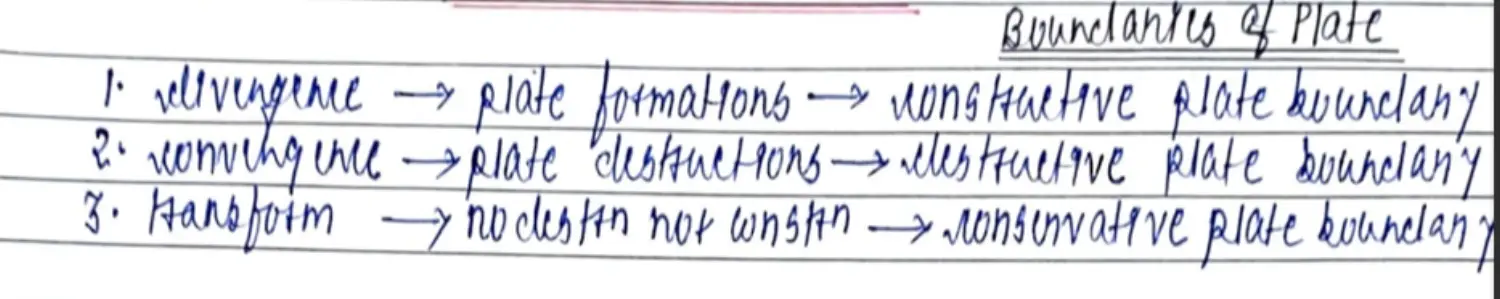 Boundaries of Plate
1. divergence → plate formations → constructive plate boundary
2. convergence → plate destructions → destructive plate boundary
3. transform → no destrn not constrn → conservative plate boundary